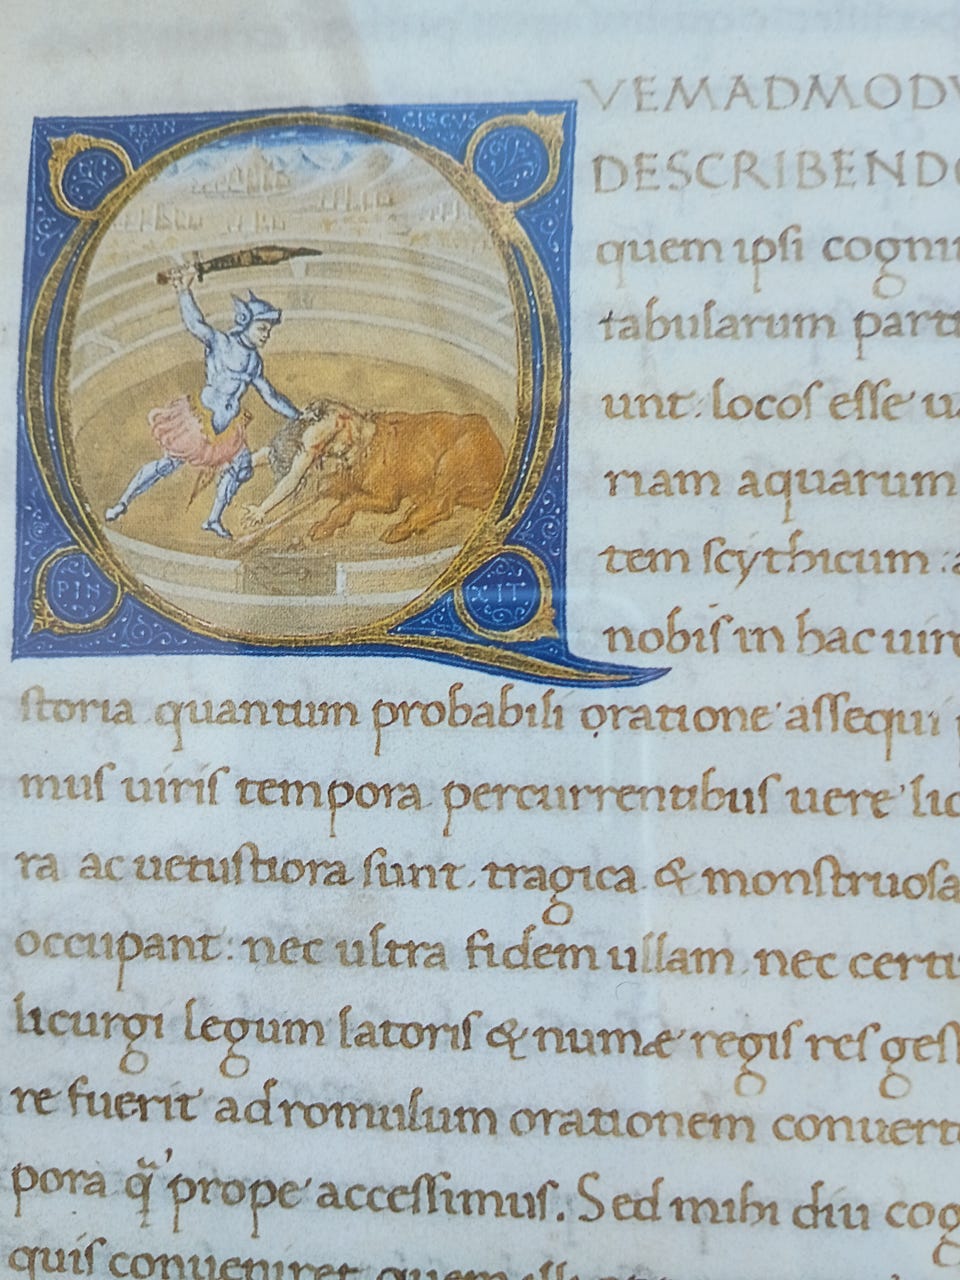 FRAN CISCUS
VEMADMODV
DESCRIBENDO
quem ipsi cogni
tabularum parti
unt: locos esse ua
riam aquarum
tem scythicum : a
PIN XIT
nobis in hac uiro
storia quantum probabili oratione assequi p
mus uiris tempora percurrentibus uere lic
ra ac uetustiora sunt. tragica & monstruosa
occupant: nec ultra fidem ullam. nec certi
licurgi legum latoris & numæ regis res gest
re fuerit ad romulum orationem conuert
pora q̃ prope accessimus. Sed mihi diu cog
quis conueniret